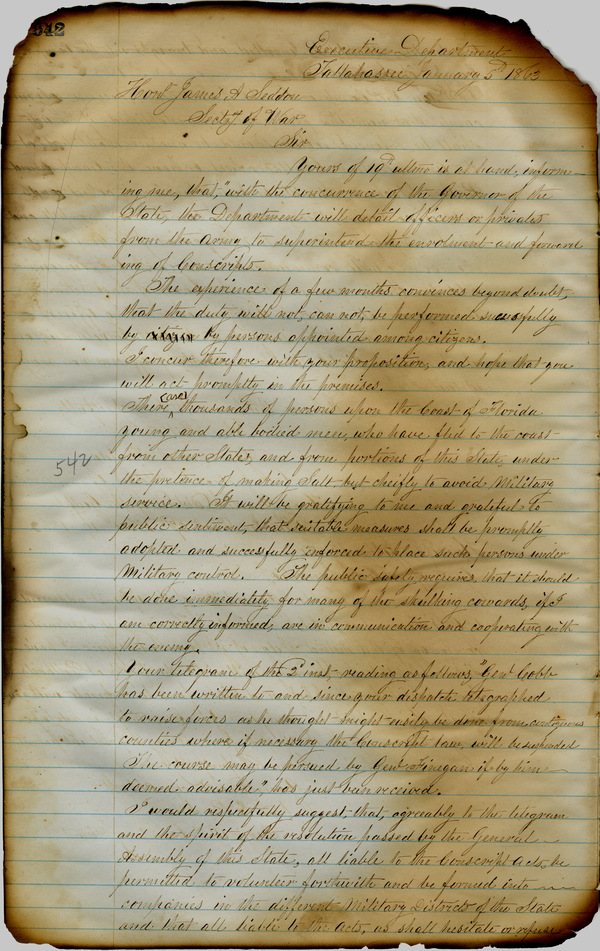 542
Executive Department
Tallahassee January 5th 1863
Honl James A Seddon
Secty of War
Sir
Yours of 10th ultimo is at hand, inform-
ing me, that, "with the concurrence of the Governor of the
State, the Department will detail officers or privates
from the Army to superintend the enrolment and forward
ing of Conscripts.
The experience of a few months convinces beyond doubt,
that the duty will not, can not, be performed sucessfully
by by persons appointed among citizens.
I concur therefore with your proposition, and hope that you
will act promptly in the premises.
There (are) thousands of persons upon the Coast of Florida
young and able bodied men, who have fled to the coast
from other States, and from portions of this State, under
the pretence of making Salt but cheifly to avoid Military
service. It will be gratifying to me and grateful to
public sentiment, that suitable measures shall be promptly
adopted and successfully enforced to place such persons under
Military control. The public safety requires, that it should
be done immediately, for many of the skulking cowards, if I
am correctly informed, are in communication and cooperating with
the enemy.
Your telegram of the 2d inst, reading as follows, "Genl Cobb
has been written to and since your dispatch telegraphed
to raise forces as he thought might easily be done from contiguous
counties where if necessary the Conscript law, will be suspended
The course may be persued by Genl Finegan if by him
deemed advisable," has just been received.
I would respectfully suggest, that, agreeably to the telegram
and the spirit of the resolution passed by the General
Assembly of this State, all liable to the Conscript Acts, be
permitted to volunteer forthwith and be formed into
companies in the different Military Districts of the State
and that all liable to the acts, as shall hesitate or refuse
542